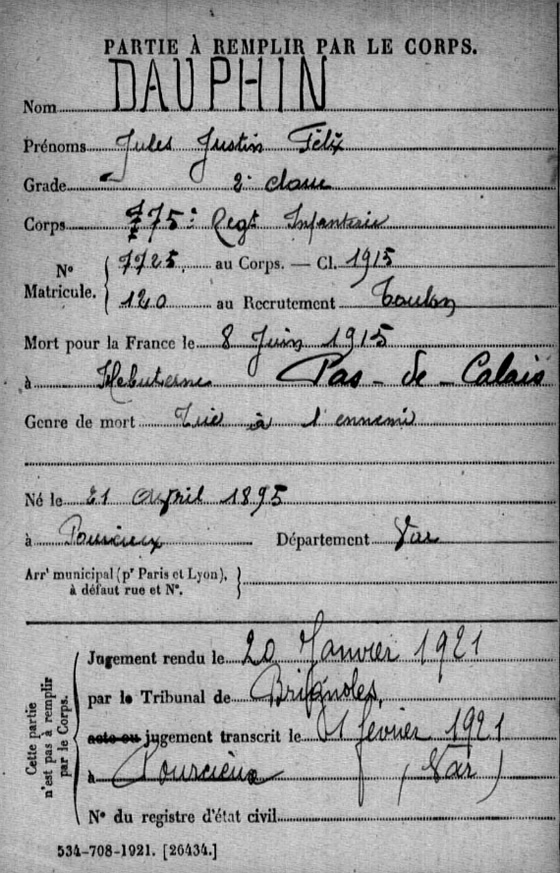 PARTIE À REMPLIR PAR LE CORPS.
Nom DAUPHIN
Prénoms Jules Justin Félix
Grade 2e classe
Corps 75e Regt Infanterie
No Matricule. 7725 au Corps. — Cl. 1915
120 au Recrutement Toulon
Mort pour la France le 8 Juin 1915
à Hebuterne Pas-de-Calais
Genre de mort Tué à l'ennemi
Né le 21 Avril 1895
à Pourcieux Département Var
Arrt municipal (pr Paris et Lyon), à défaut rue et No.
Cette partie n'est pas à remplir par le Corps.
Jugement rendu le 20 Janvier 1921
par le Tribunal de Brignoles,
acte ou jugement transcrit le février 1921
à Pourcieux (Var)
No du registre d'état civil
534-708-1921. [26434.]